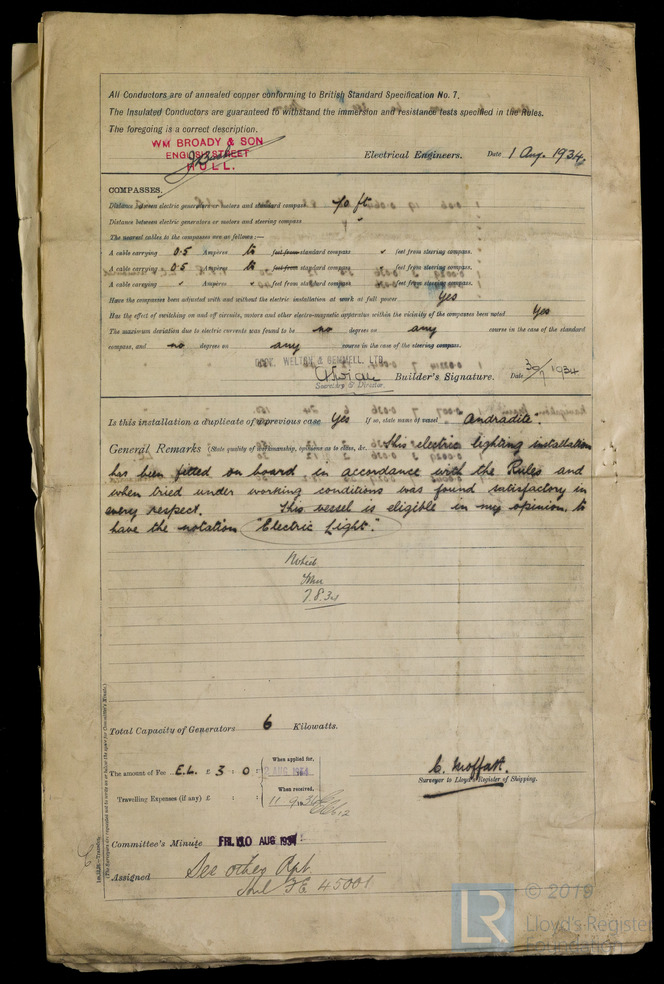 All Conductors are of annealed copper conforming to British Standard Specification No. 7.
The Insulated Conductors are guaranteed to withstand the immersion and resistance tests specified in the Rules.
The foregoing is a correct description.
WM BROADY & SON
ENGLISH STREET
HULL.
Electrical Engineers. Date 1 Aug. 1934.
COMPASSES.
Distance between electric generators or motors and standard compass 70 ft
Distance between electric generators or motors and steering compass "
The nearest cables to the compasses are as follows:—
A cable carrying 0.5 Ampères to feet from standard compass feet from steering compass.
A cable carrying 0.5 Ampères to feet from standard compass feet from steering compass.
A cable carrying Ampères feet from standard compass feet from steering compass.
Have the compasses been adjusted with and without the electric installation at work at full power Yes
Has the effect of switching on and off circuits, motors and other electro-magnetic apparatus within the vicinity of the compasses been noted Yes
The maximum deviation due to electric currents was found to be no degrees on any course in the case of the standard
compass, and no degrees on any course in the case of the steering compass.
COOK, WELTON & GEMMELL, LTD.
Builder's Signature. Date 30/7 1934
Secretary & Director
Is this installation a duplicate of a previous case Yes If so, state name of vessel Andradite.
General Remarks (State quality of workmanship, opinions as to class, &c. This electric lighting installation
has been fitted on board in accordance with the Rules and
when tried under working conditions was found satisfactory in
every respect. This vessel is eligible in my opinion to
have the notation "Electric Light."
Noted
7.8.34
Total Capacity of Generators 6 Kilowatts.
The amount of Fee E.L. £ 3 : 0 : When applied for,
AUG 1934
When received,
Travelling Expenses (if any) £ : : 11.9.34
C. Moffatt.
Surveyor to Lloyd's Register of Shipping.
Committee's Minute FRI. 10 AUG 1934
Assigned See other Rpt
Hul FE 45001
LR
© 2019
Lloyd's Register
Foundation